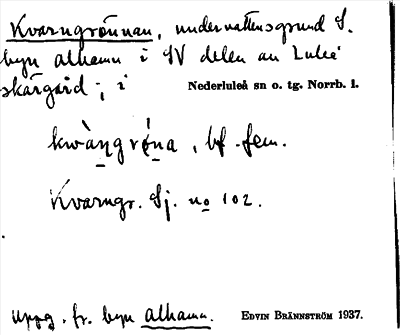 Kvarngrönnan, undervattensgrund S.
byn alhamn i SV delen av Luleå
skärgård; i Nederluleå sn o. tg. Norrb. l.
kwàṇgrǿna, bf. fem.
Kvarngr. Sj. no 102.
Uppg. fr. byn alhamn. EDVIN BRÄNNSTRÖM 1937.